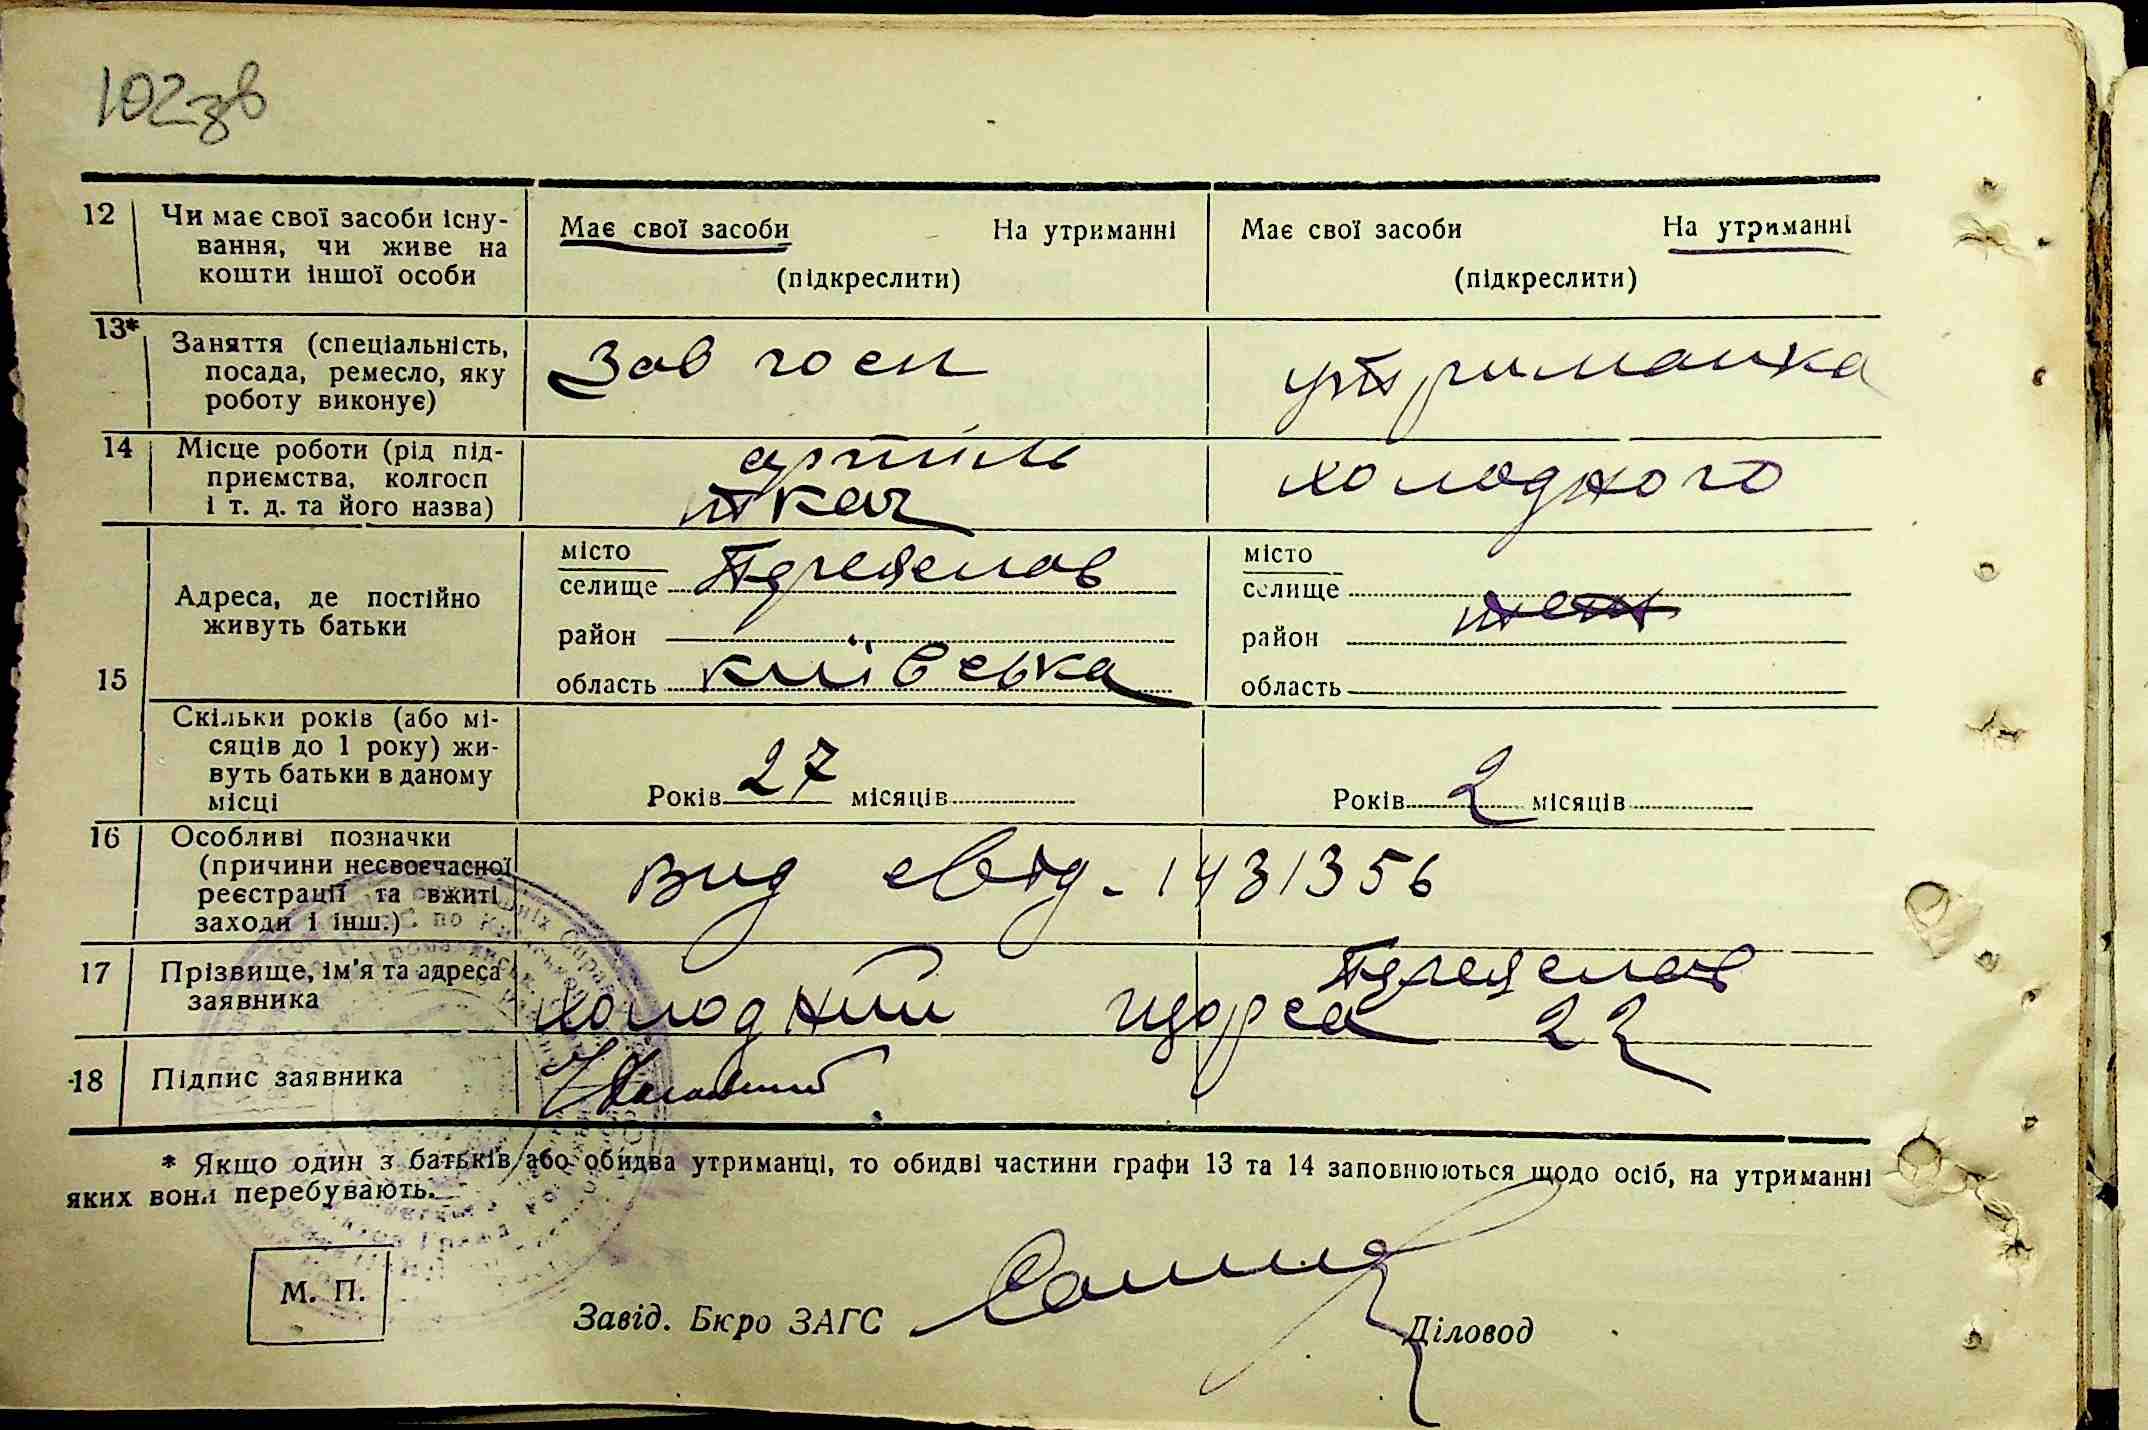 102зв
12 Чи має свої засоби існу-
вання, чи живе на
кошти іншої особи
Має свої засоби На утриманні
(підкреслити)
Має свої засоби На утриманні
(підкреслити)
13* Заняття (спеціальність,
посада, ремесло, яку
роботу виконує)
Зав госп
утриманка
14 Місце роботи (рід під-
приємства, колгосп
і т. д. та його назва)
артіль
ткач
холодного
15 Адреса, де постійно
живуть батьки
місто
селище Переяслав
район
область київська
місто
селище
район
область
Скільки років (або мі-
сяців до 1 року) жи-
вуть батьки в даному
місці
Років 27 місяців
Років 2 місяців
16 Особливі позначки
(причини несвоєчасної
реєстрації та вжиті
заходи і інш.)
Вид свід. 1431356
17 Прізвище, ім'я та адреса
заявника
Переяслав
холодний щорса 22
18 Підпис заявника
* Якщо один з батьків або обидва утриманці, то обидві частини графи 13 та 14 заповнюються щодо осіб, на утриманні
яких вони перебувають.
М. П.
Завід. Бюро ЗАГС Діловод